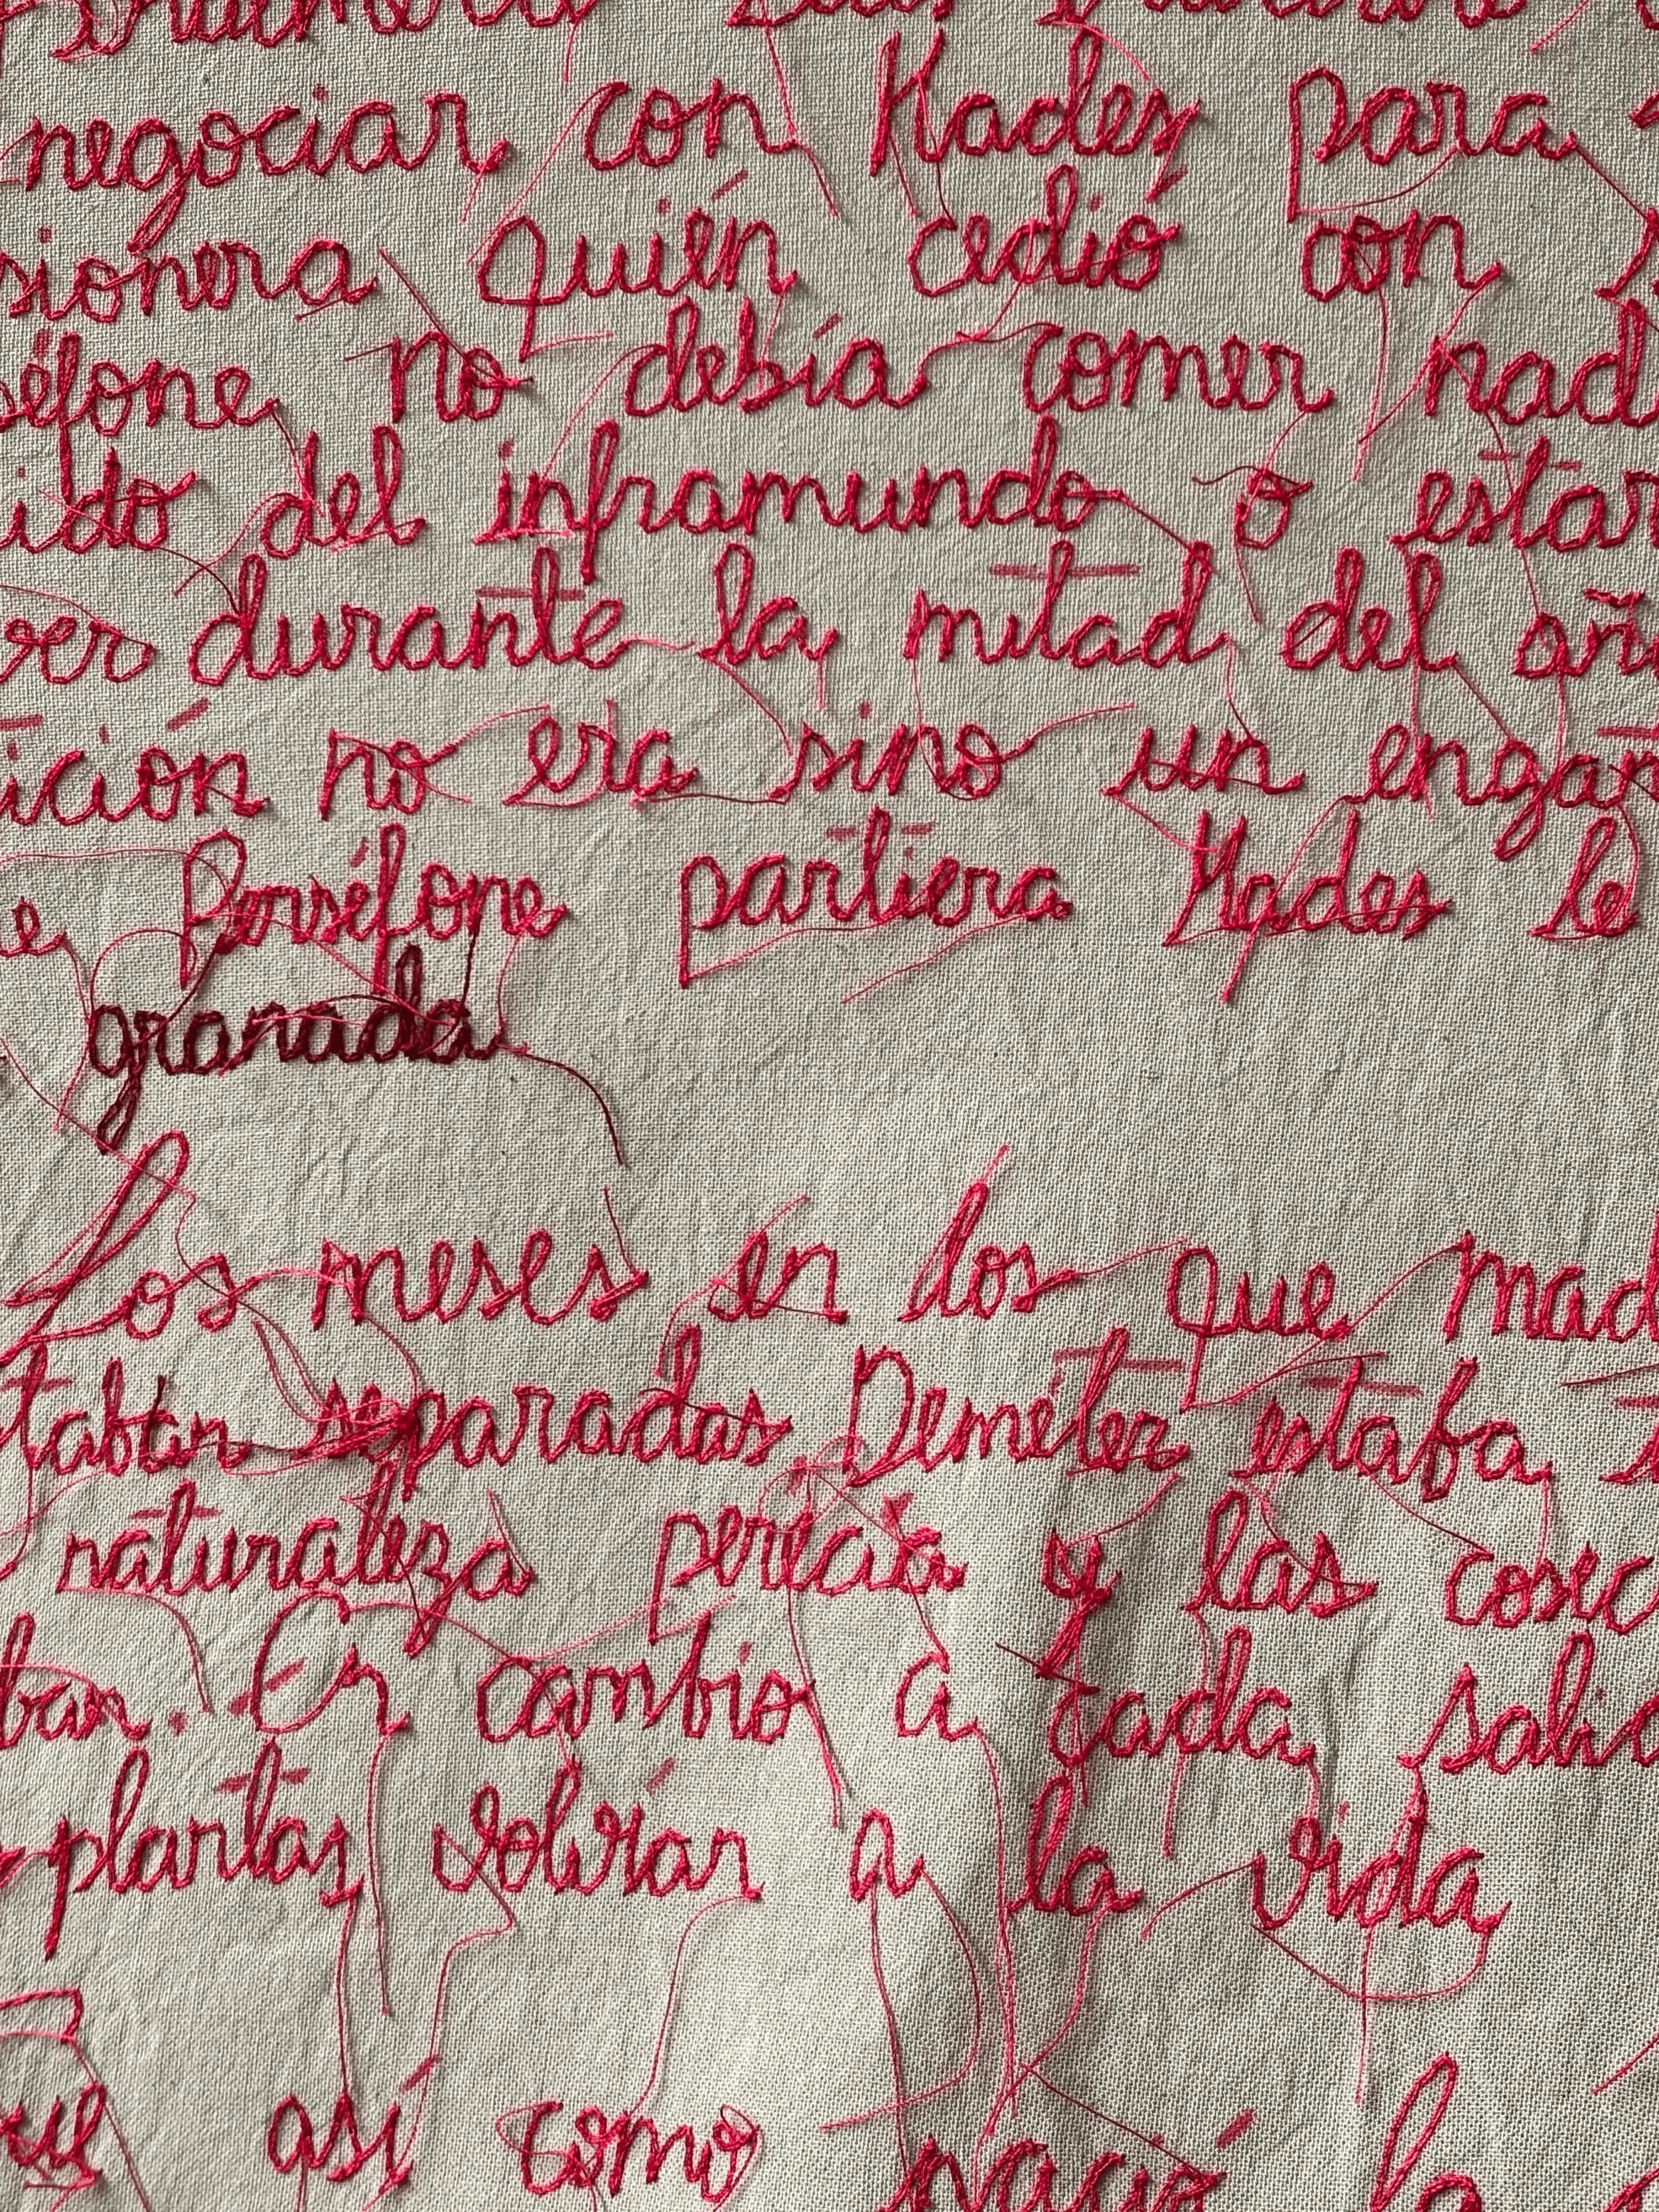 negociar con Hades para
sionera quién cedió con
séfone no debía comer nad
ido del inframundo o estar
ver durante la mitad del añ
ición no era sino un engañ
e Perséfone partiera Hades le
granada
Los meses en los que mad
taban separadas Deméter estaba
naturaleza perecía y las cosec
ban. En cambio a cada salid
plantas volvían a la vida
que así como nació la